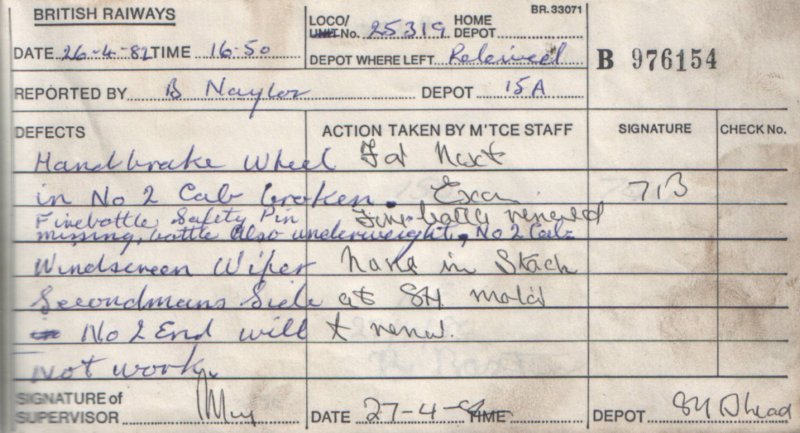 BRITISH RAIWAYS
BR.33071
LOCO/ UNIT No. 25319 HOME DEPOT
DATE 26-4-82 TIME 16·50
DEPOT WHERE LEFT Releived
B 976154
REPORTED BY B Naylor DEPOT 15A
DEFECTS ACTION TAKEN BY M'TCE STAFF SIGNATURE CHECK No.
Handbrake Wheel For Next
in No 2 Cab broken. Exam 71B
Firebottle Safety Pin Fire bottle renewed
missing, bottle also underweight, No 2 Cab
Windscreen Wiper None in Stock
Secondmans Side at SH
No 2 End will & renew.
Not work.
SIGNATURE OF SUPERVISOR DATE 27-4- TIME DEPOT